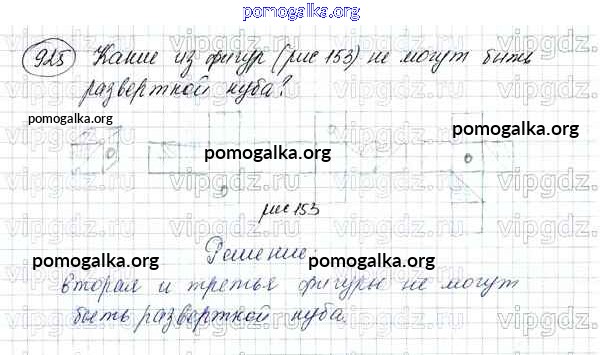 pomogalka.org
925 Какие из фигур (рис 153) не могут быть
разверткой куба?
pomogalka.org
pomogalka.org
pomogalka.org
рис 153
Решение:
pomogalka.org
pomogalka.org
вторая и третья фигуры не могут
быть разверткой куба.
vipgdz.ru vipgdz.ru vipgdz.ru